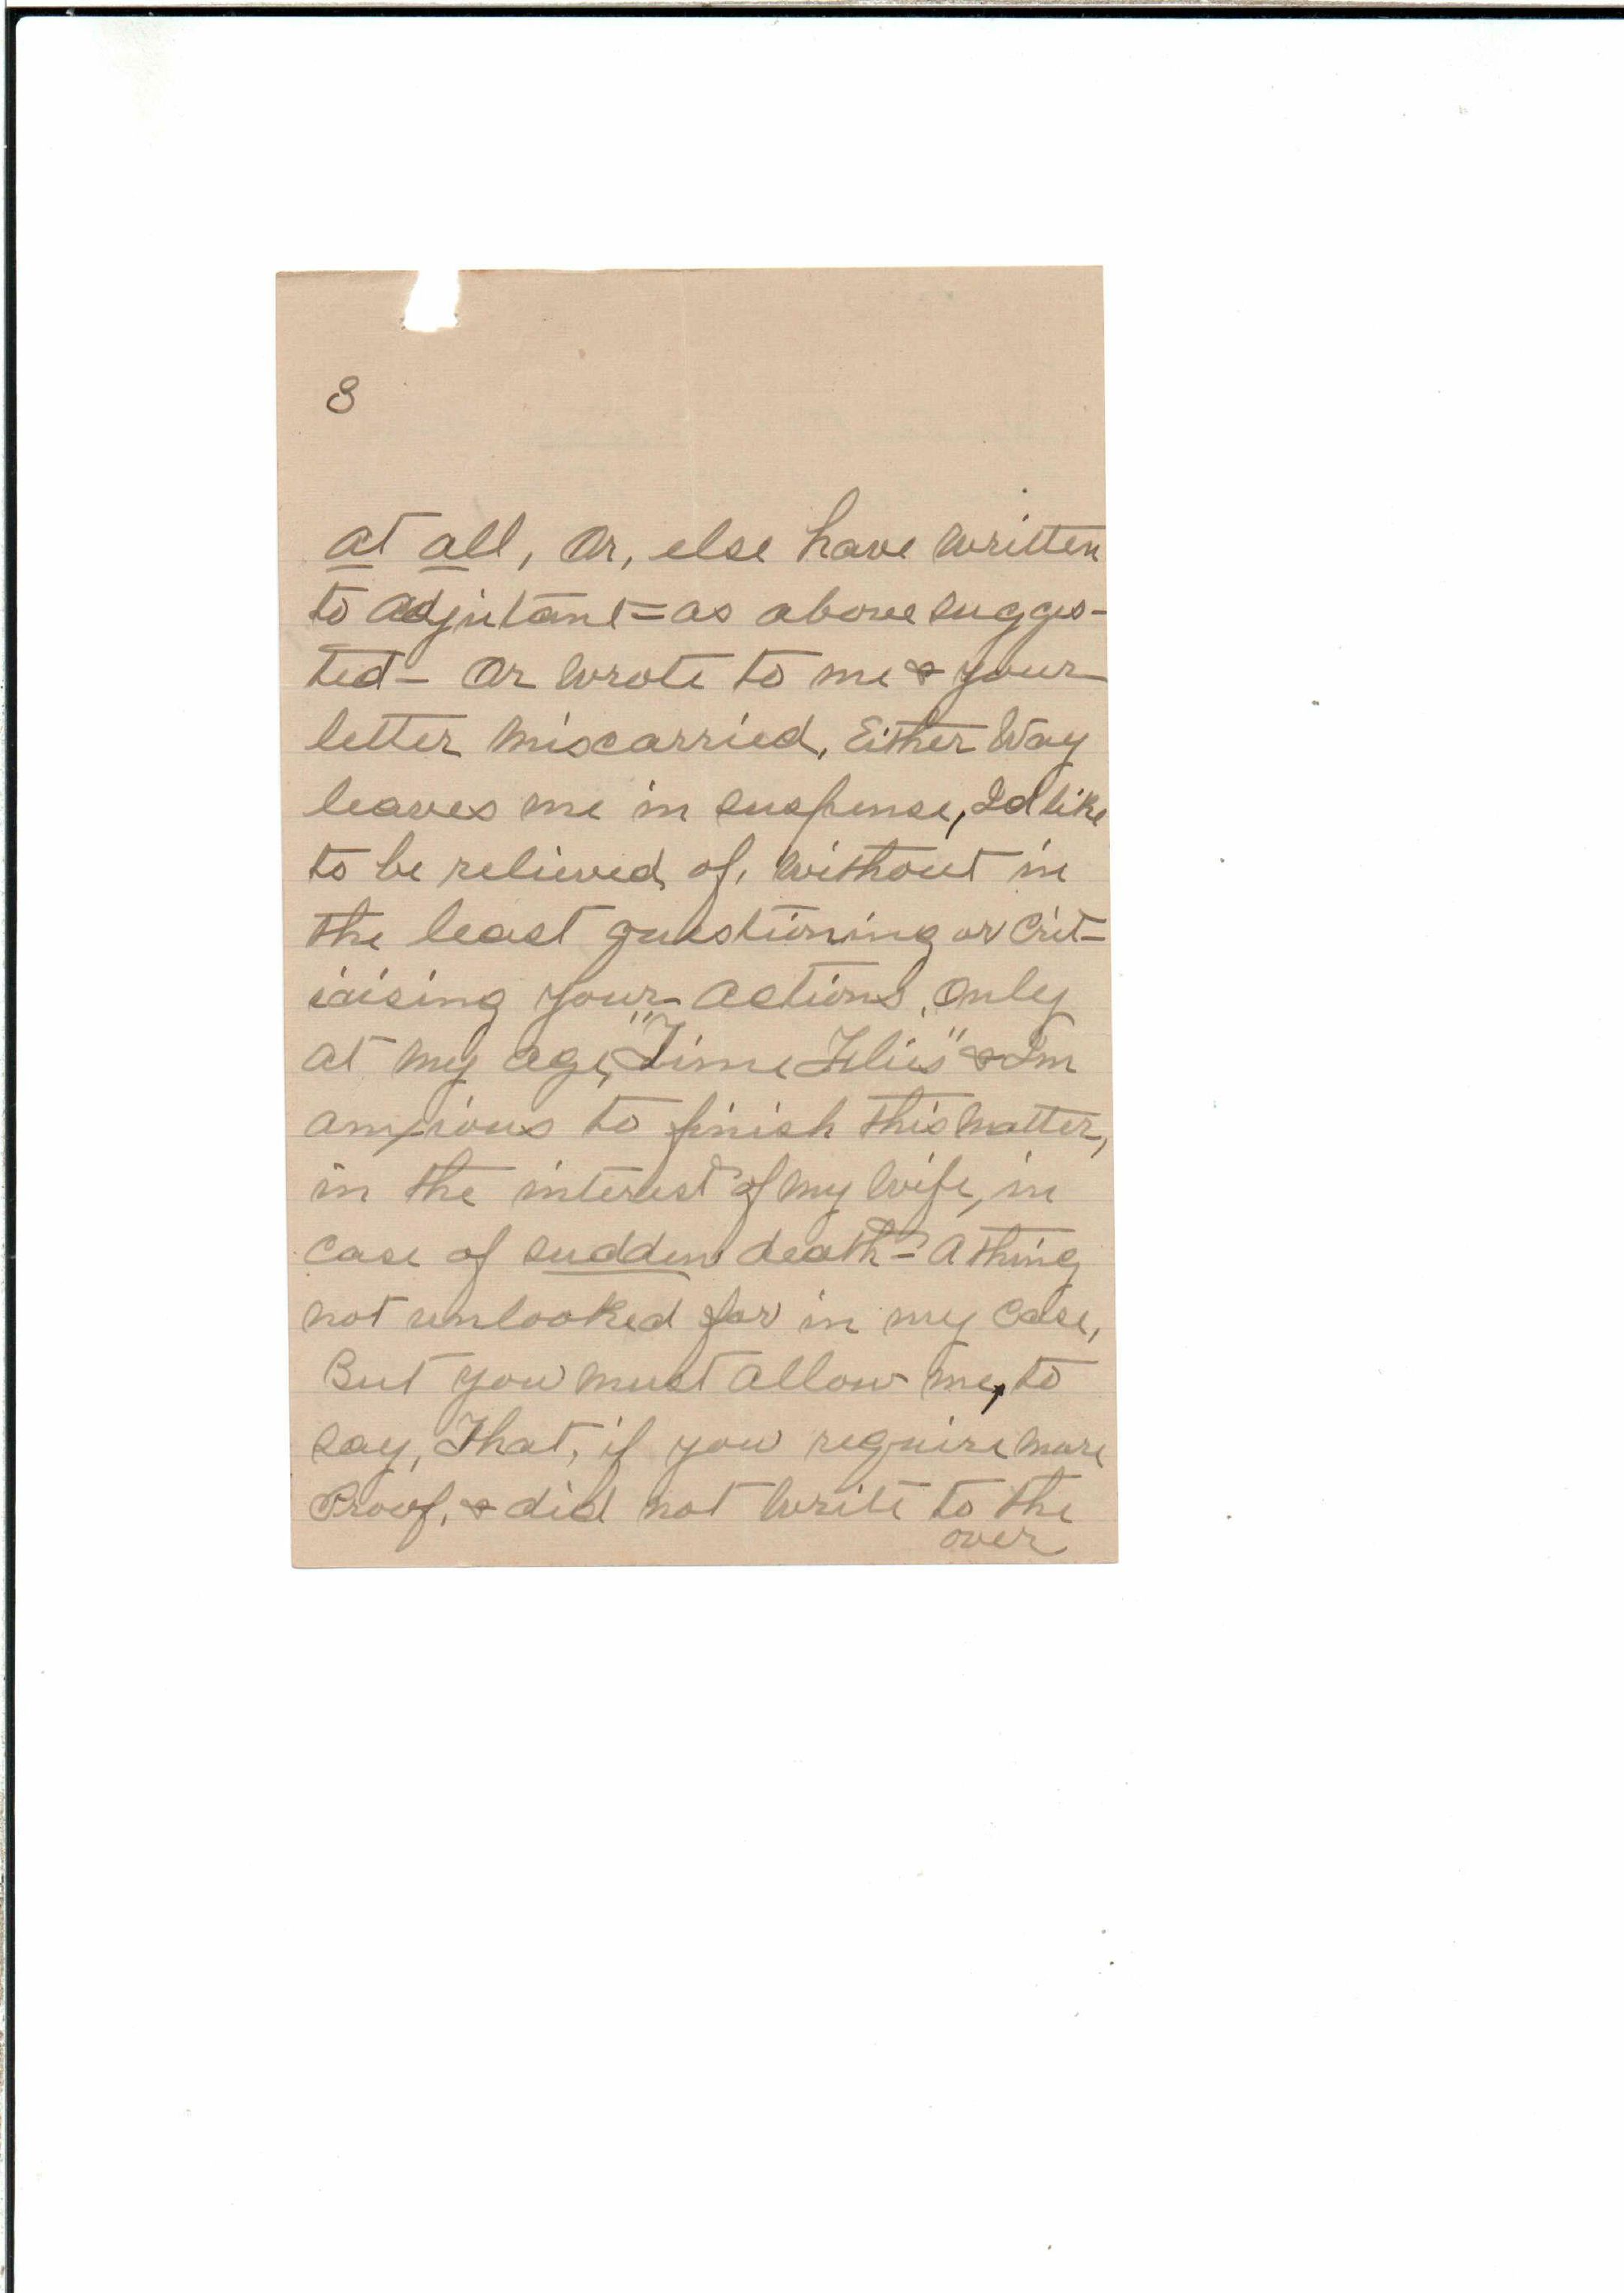 8
at all, Or, else have written
to Adjutant = as above sugges-
ted - Or wrote to me & your
letter miscarried, Either Way
leaves me in suspense, I'd like
to be relieved of, without in
the least questioning or Crit-
icising your actions, Only
at my age, "Time Flies" & I'm
anxious to finish this matter,
in the interest of my wife, in
case of sudden death - A thing
not unlooked for in my case,
But you must allow me, to
say, That, if you require more
Proof, & did not write to the
over